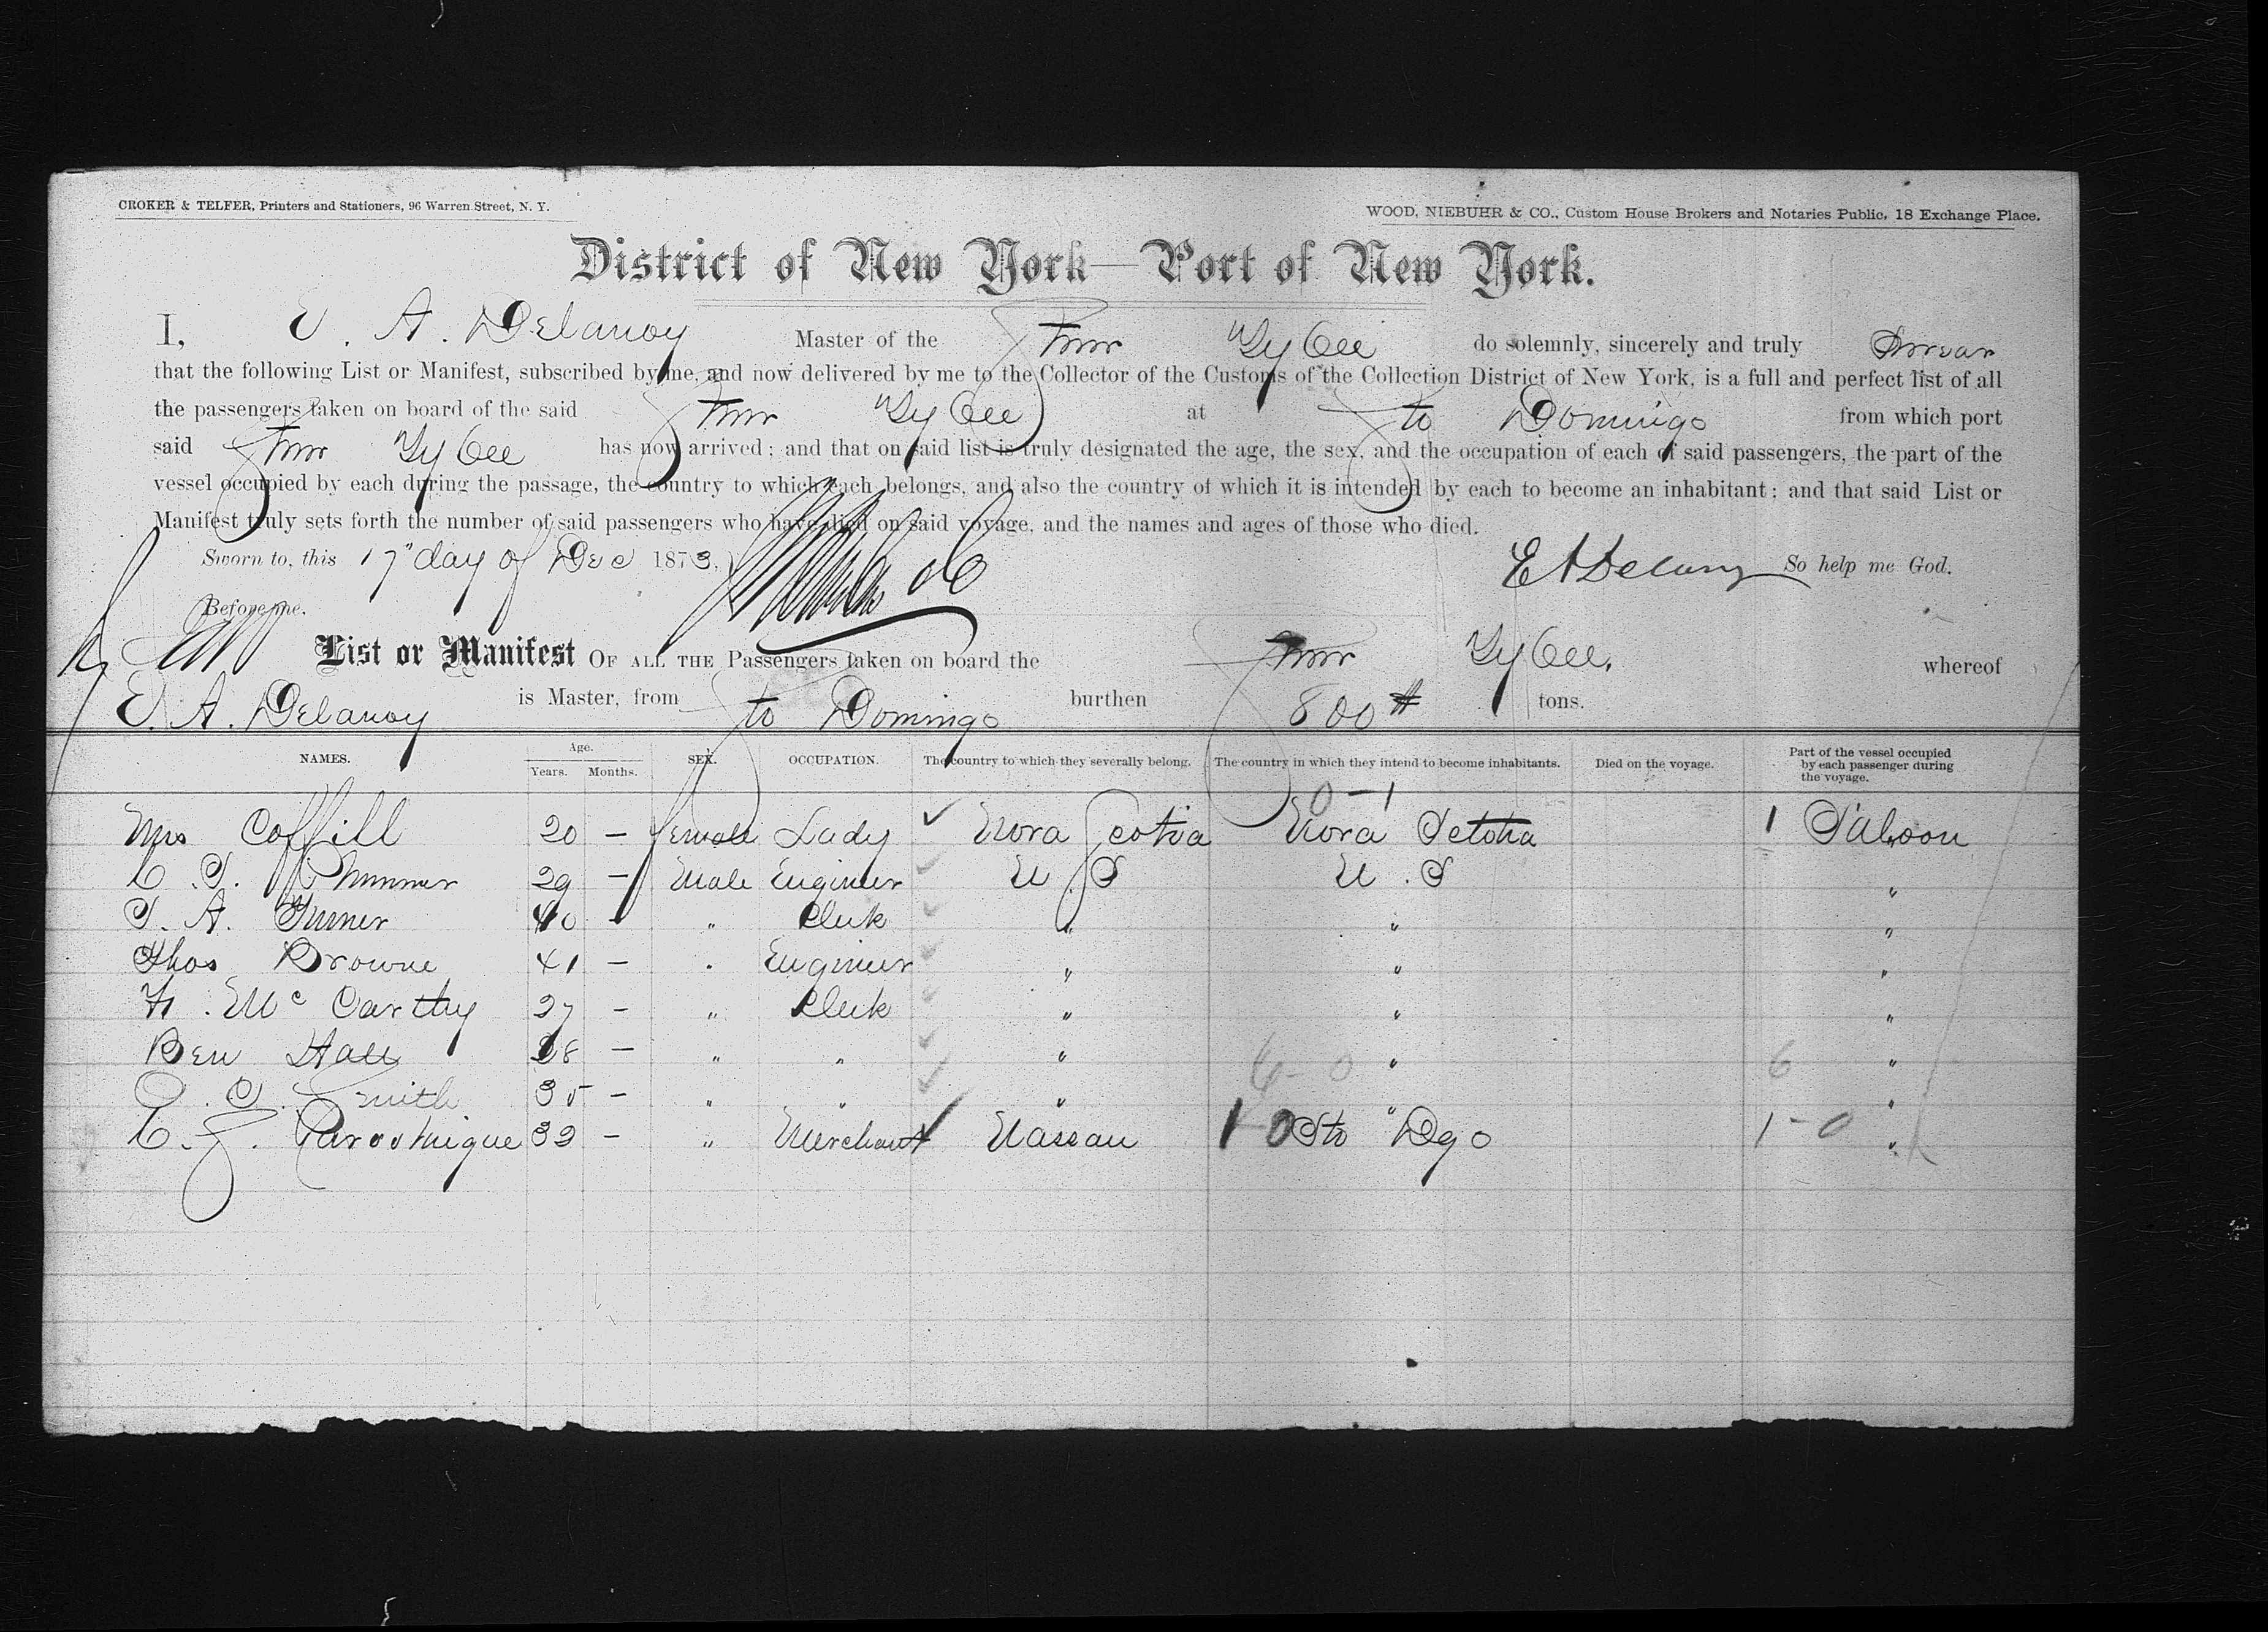 CROKER & TELFER, Printers and Stationers, 96 Warren Street, N. Y.
WOOD, NIEBUHR & CO., Custom House Brokers and Notaries Public, 18 Exchange Place.
District of New York—Port of New York.
I, E. A. Delanoy Master of the Stmr Tybee do solemnly, sincerely and truly Swear
that the following List or Manifest, subscribed by me, and now delivered by me to the Collector of the Customs of the Collection District of New York, is a full and perfect list of all
the passengers taken on board of the said Stmr Tybee at Sto Domingo from which port
said Stmr Tybee has now arrived; and that on said list is truly designated the age, the sex, and the occupation of each of said passengers, the part of the
vessel occupied by each during the passage, the country to which each belongs, and also the country of which it is intended by each to become an inhabitant; and that said List or
Manifest truly sets forth the number of said passengers who have died on said voyage, and the names and ages of those who died.
Sworn to, this 17" day of Dec 1873, E A Delanoy So help me God.
Before me,
List or Manifest OF ALL THE Passengers taken on board the Stmr Tybee. whereof
E. A. Delanoy is Master, from Sto Domingo burthen 800 # tons.
NAMES. Age. Years. Months. SEX. OCCUPATION. The country to which they severally belong. The country in which they intend to become inhabitants. Died on the voyage. Part of the vessel occupied by each passenger during the voyage.
0-1
Mrs Coffill 20 — female Lady Nova Scotia Nova Scotia 1 Saloon
C. S. 29 — Male Engineer U S U. S "
S. A. Turner 40 - " Clerk " " "
Thos Browne 41 — " Engineer " " "
H. Mc Carthy 27 — " Clerk " " "
Ben Hall 38 — " " " 6-0 " 6 "
S. Smith 35 — " " " " "
C. 32 — " Merchant Nassau 1 0 Sto Dgo 1-0 "